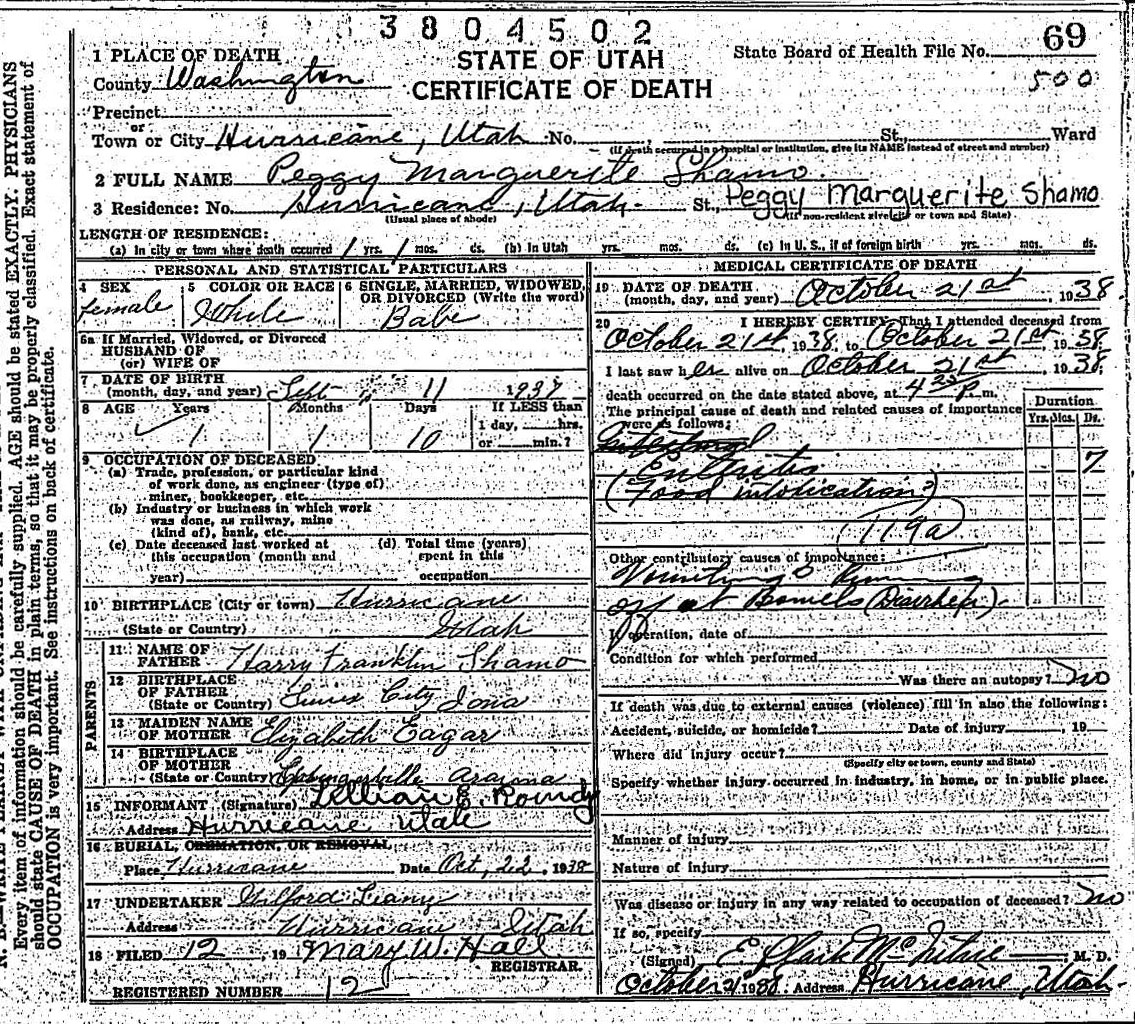 3804502
1 PLACE OF DEATH
STATE OF UTAH
State Board of Health File No. 69
County Washington
CERTIFICATE OF DEATH
500
Precinct
or
Town or City Hurricane, Utah No. , St., Ward
(If death occurred in a hospital or institution, give its NAME instead of street and number)
2 FULL NAME Peggy Marguerite Shamo
3 Residence: No. Hurricane, Utah. St., Peggy Marguerite Shamo
(Usual place of abode) (If non-resident give city or town and State)
LENGTH OF RESIDENCE:
(a) In city or town where death occurred 1 yrs. 1 mos. ds. (b) In Utah yrs. mos. ds. (c) In U. S., if of foreign birth yrs. mos. ds.
PERSONAL AND STATISTICAL PARTICULARS
4 SEX 5 COLOR OR RACE 6 SINGLE, MARRIED, WIDOWED,
OR DIVORCED (Write the word)
female White Babe
6a If Married, Widowed, or Divorced
HUSBAND OF
(or) WIFE OF
7 DATE OF BIRTH
(month, day, and year) Sept 11 1937
8 AGE Years Months Days If LESS than
1 1 10 1 day, hrs.
or min.?
9 OCCUPATION OF DECEASED
(a) Trade, profession, or particular kind
of work done, as engineer (type of)
miner, bookkeeper, etc.
(b) Industry or business in which work
was done, as railway, mine
(kind of), bank, etc.
(c) Date deceased last worked at (d) Total time (years)
this occupation (month and spent in this
year) occupation
10 BIRTHPLACE (City or town) Hurricane
(State or Country) Utah
PARENTS
11 NAME OF
FATHER Harry Franklin Shamo
12 BIRTHPLACE
OF FATHER
(State or Country) City Iowa
13 MAIDEN NAME
OF MOTHER Elizabeth Eagar
14 BIRTHPLACE
OF MOTHER
(State or Country) Springerville Arazona
15 INFORMANT (Signature) Lillian E. Roundy
Address Hurricane Utah
16 BURIAL, CREMATION, OR REMOVAL
Place Hurricane Date Oct, 22, 1938
17 UNDERTAKER Wilford
Address Hurricane Utah
18 FILED 12 19 Mary W. Hall
REGISTRAR.
REGISTERED NUMBER 12
MEDICAL CERTIFICATE OF DEATH
19 DATE OF DEATH
(month, day, and year) October 21st, 1938.
20 I HEREBY CERTIFY That I attended deceased from
October 21st, 1938, to October 21st 1938.
I last saw her alive on October 21st, 1938,
death occurred on the date stated above, at 4 p.m.
The principal cause of death and related causes of importance
were as follows:
Duration
Yrs. Mos. Ds.
7
(Food intoxication)
119a
Other contributory causes of importance:
Vomiting & Running
off at Bowels (Diarrhea).
If operation, date of
Condition for which performed
Was there an autopsy? No
If death was due to external causes (violence) fill in also the following:
Accident, suicide, or homicide? Date of injury , 19
Where did injury occur?
(Specify city or town, county and State)
Specify whether injury occurred in industry, in home, or in public place.
Manner of injury
Nature of injury
Was disease or injury in any way related to occupation of deceased? No
If so, specify
(Signed) E. Clark McIntire M. D.
October 21 1938. Address Hurricane, Utah.
Every item of information should be carefully supplied. AGE should be stated EXACTLY. PHYSICIANS
should state CAUSE OF DEATH in plain terms, so that it may be properly classified. Exact statement of
OCCUPATION is very important. See instructions on back of certificate.